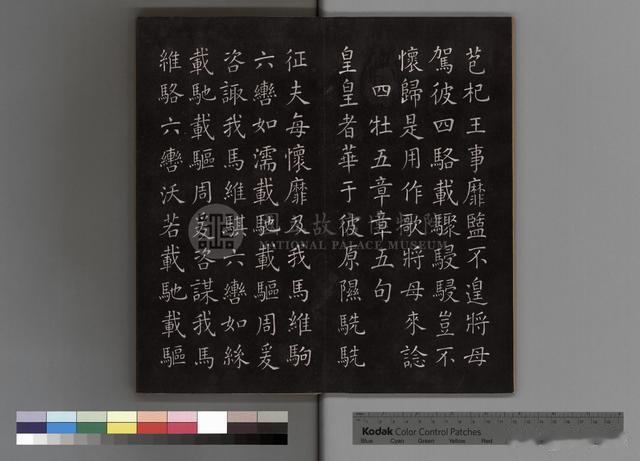 苞杞王事靡盬不遑將母
駕彼四駱載驟駸駸豈不
懷歸是用作歌將母來諗
四牡五章章五句
皇皇者華于彼原隰駪駪
征夫每懷靡及我馬維駒
六轡如濡載馳載驅周爰
咨諏我馬維騏六轡如絲
載馳載驅周爰咨謀我馬
維駱六轡沃若載馳載驅
國立故宮博物院
NATIONAL PALACE MUSEUM
Kodak Color Control Patches
Blue Cyan Green Yellow Red